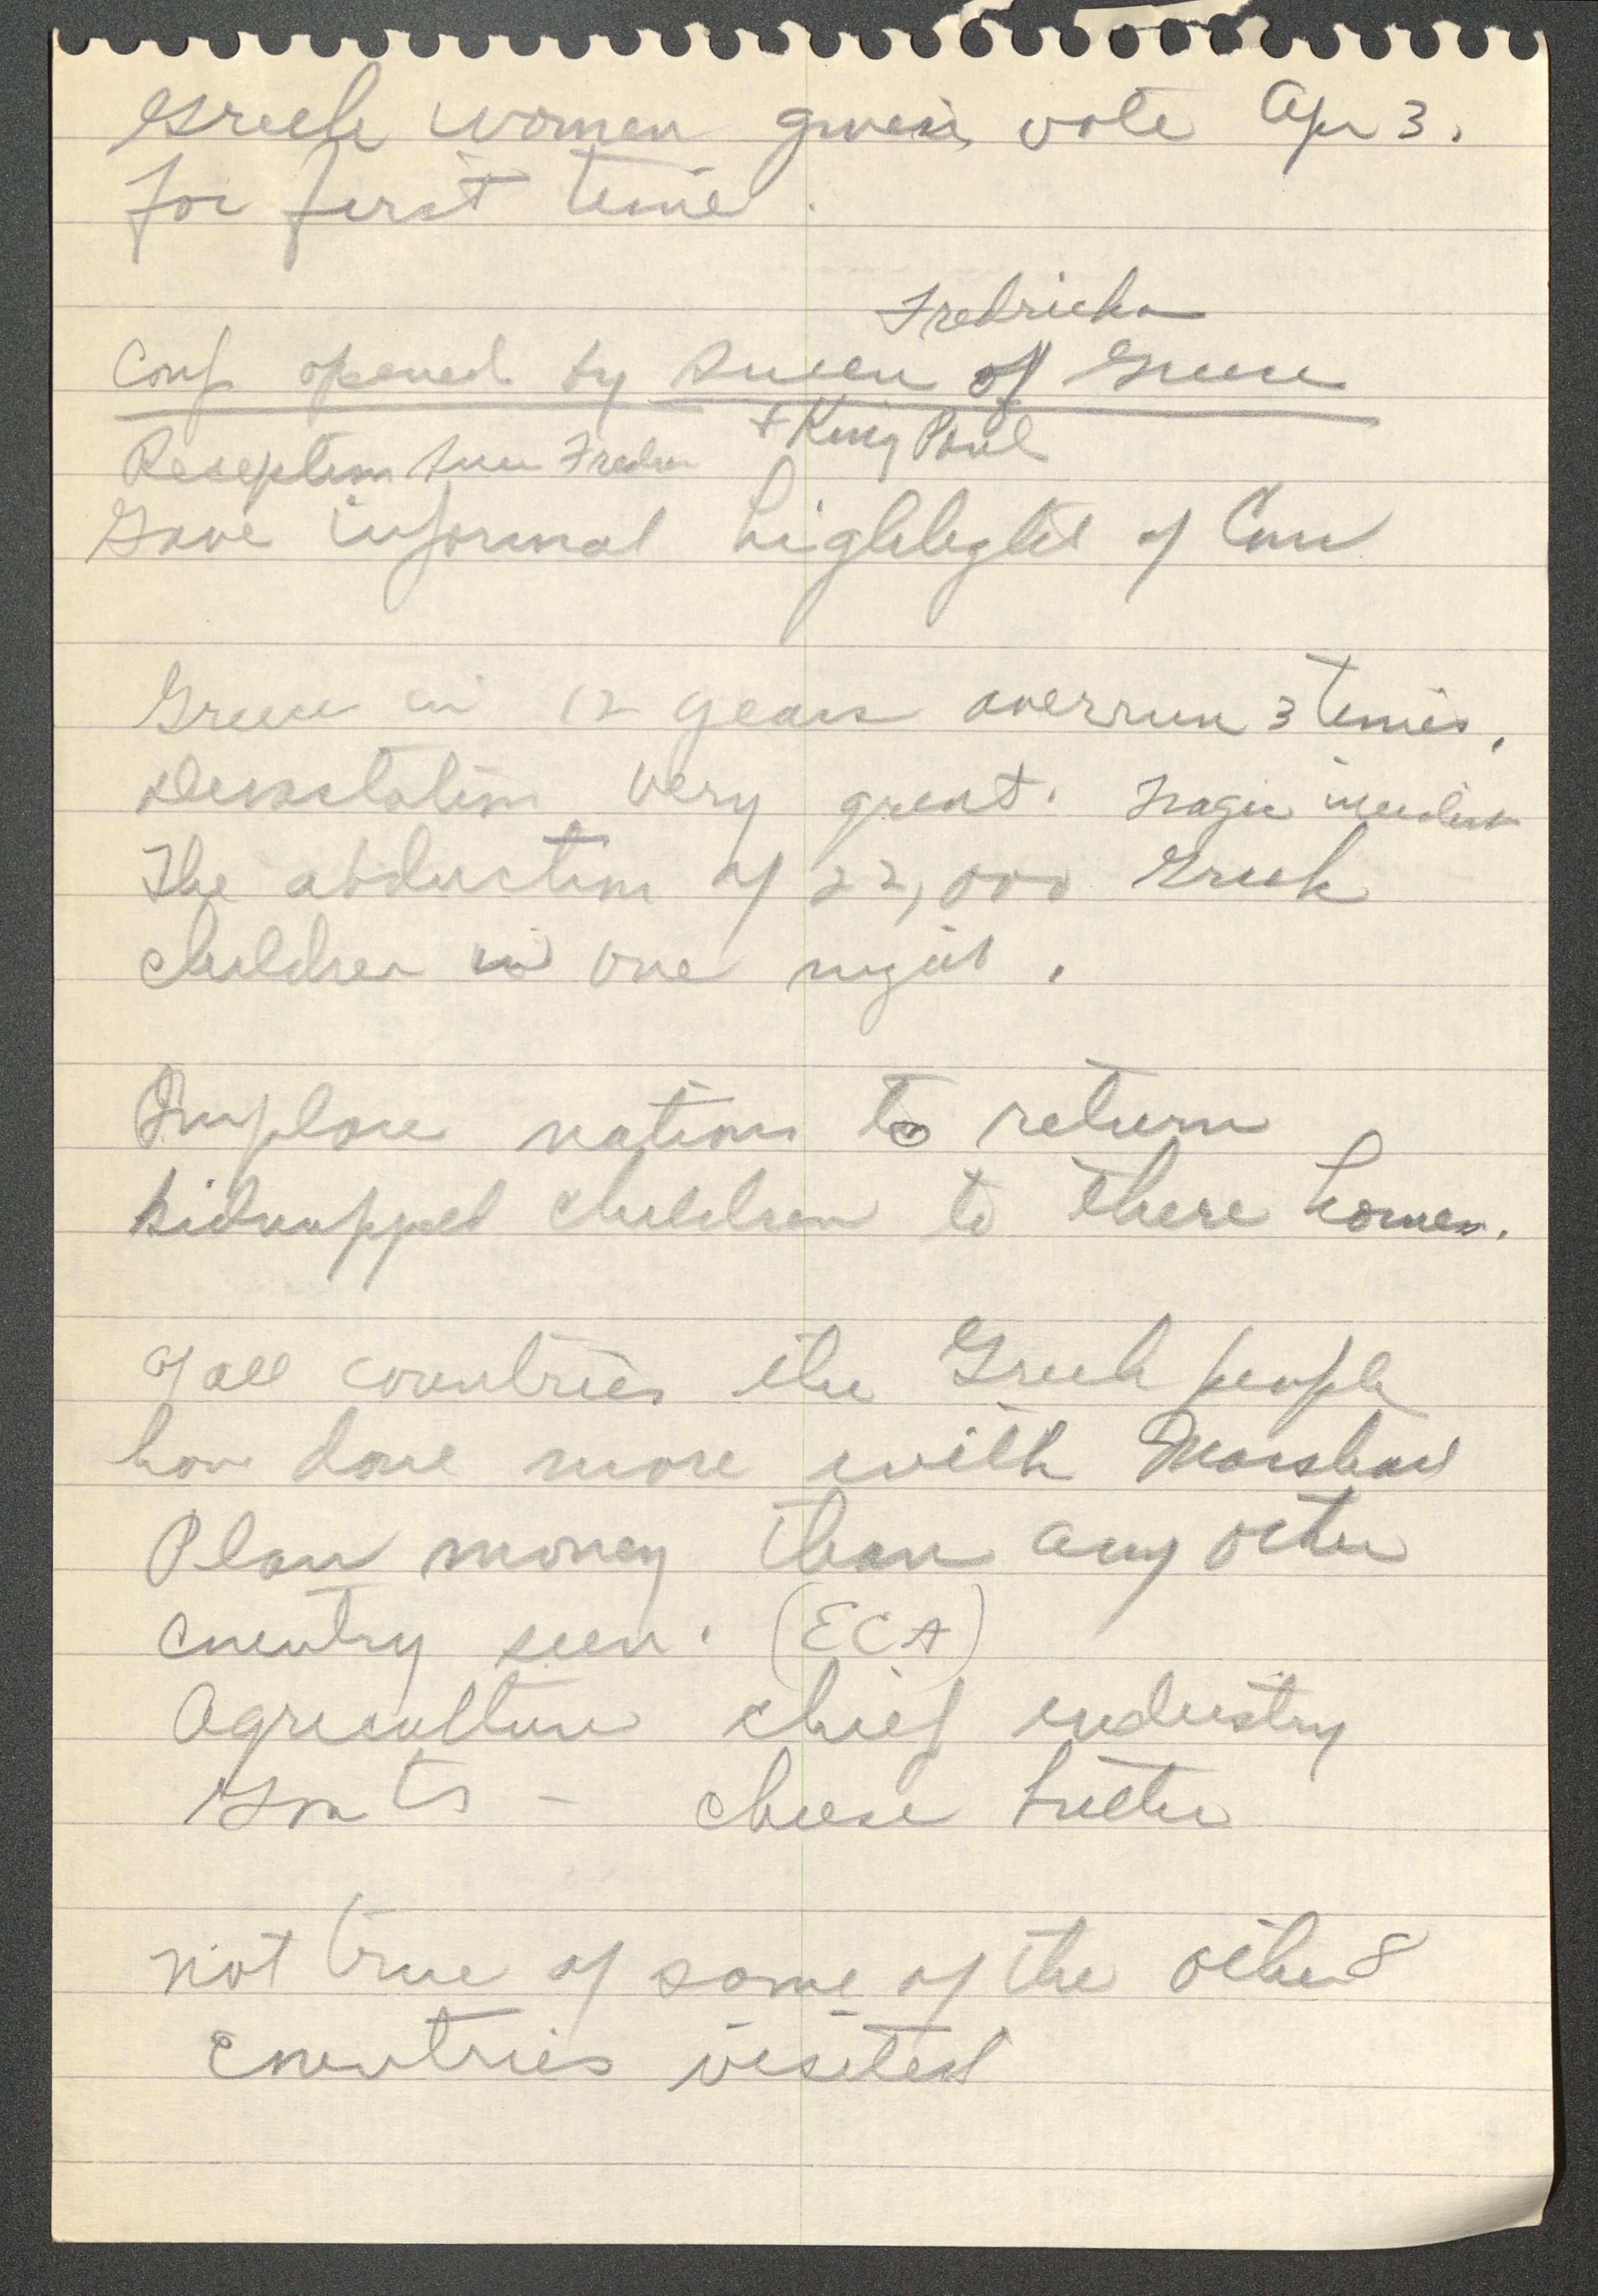 Greek women given vote Apr 3.
for first time.
Fredricka
Conf opened by Queen of Greece
+ King Paul
Reseption Queen Fredr
Gave informal highlights of Conf
Greece in 12 years overrun 3 times.
Devastation very great. Tragic incident
The abduction of 22,000 Greek
children in one night.
Implore nations to return
kidnapped children to there homes.
Of all countries the Greek people
have done more with Marshall
Plan money than any other
country seen. (ECA)
Agriculture chief industry
Goats - cheese butter
not true of some of the other 8
countries visited